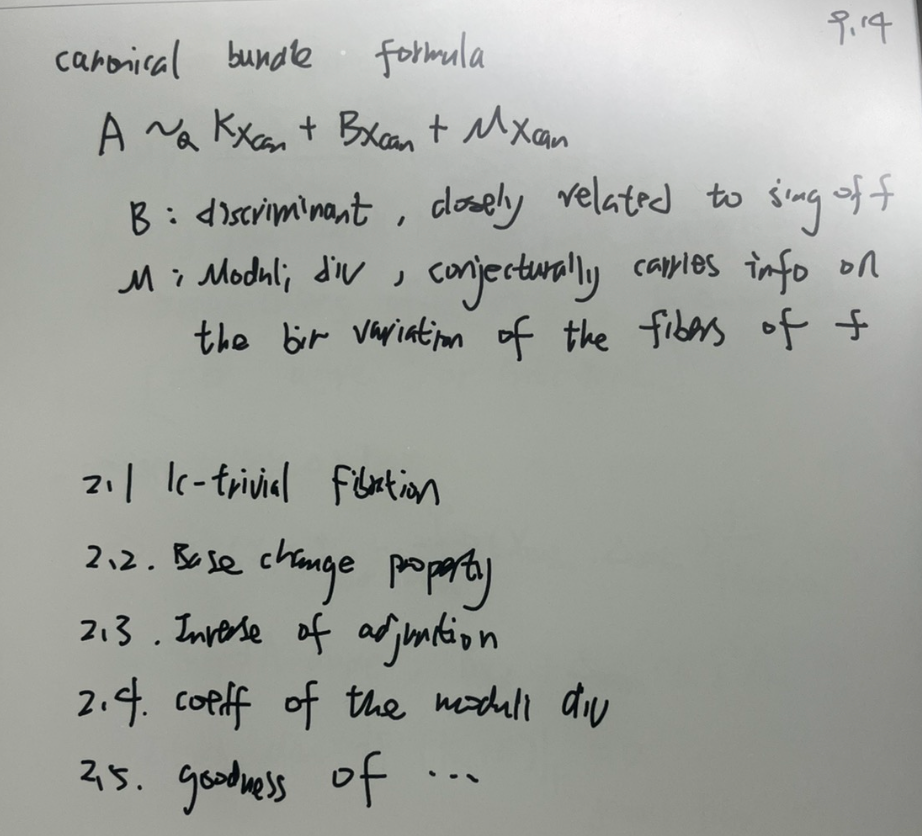 9.14
canonical bundle formula
A ~Q KXcan + BXcan + MXcan
B : discriminant, closely related to sing of f
M : Moduli div, conjecturally carries info on
the bir variation of the fibers of f
2.1 lc-trivial Fibration
2.2. Base change property
2.3. Inverse of adjunction
2.4. coeff of the moduli div
2.5. goodness of ...